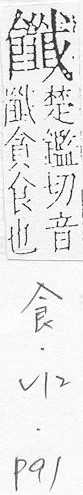 楚鑑切音
懺貪食也
食.V12.P91